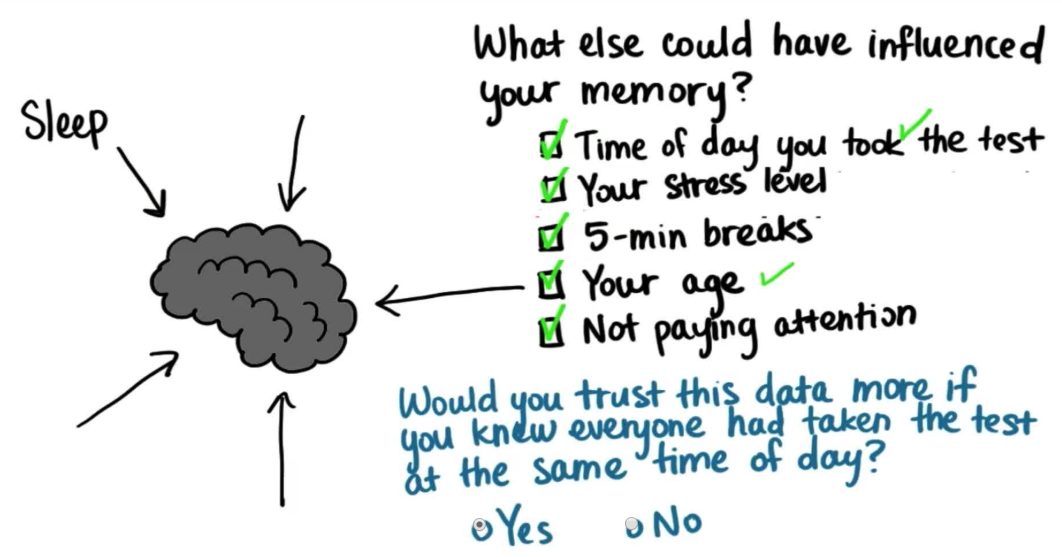 What else could have influenced
your memory?
Sleep
Time of day you took the test
Your stress level
5-min breaks
Your age
Not paying attention
Would you trust this data more if
you knew everyone had taken the test
at the same time of day?
Yes No